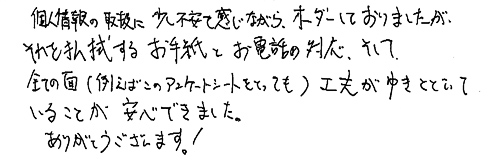 個人情報の取扱に少し不安で感じながら、オーダーしておりましたが、
それを払拭するお手紙とお電話の対応、そして
全ての面(例えばこのアンケートシートをとっても)工夫がゆきとどいて
いることが安心できました。
ありがとうございます!